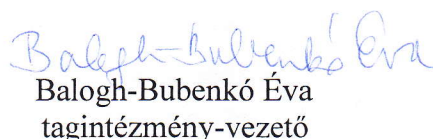 Balogh-Bubenkó Éva
Balogh-Bubenkó Éva
tagintézmény-vezető